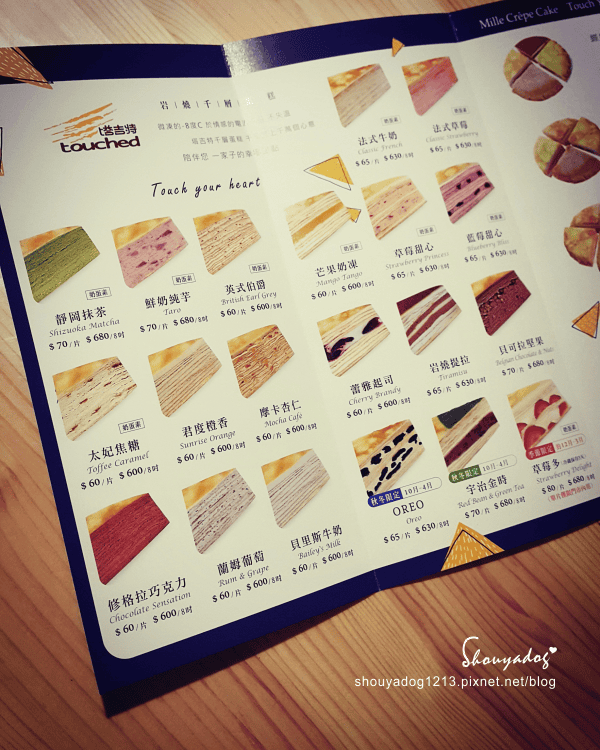 Mille Crêpe Cake Touch
塔吉特
touched
岩燒千層
陪伴您一家子的
Touch your heart
奶蛋素
靜岡抹茶
Shizuoka Matcha
$70/片 $680/8吋
奶蛋素
鮮奶純芋
Taro
$70/片 $680/8吋
奶蛋素
英式伯爵
British Earl Grey
$60/片 $600/8吋
奶蛋素
太妃焦糖
Toffee Caramel
$60/片 $600/8吋
君度橙香
Sunrise Orange
$60/片 $600/8吋
摩卡杏仁
Mocha Cafe
$60/片 $600/8吋
修格拉巧克力
Chocolate Sensation
$60/片 $600/8吋
蘭姆葡萄
Rum & Grape
$60/片 $600/8吋
貝里斯牛奶
Bailey's Milk
$60/片 $600/8吋
奶蛋素
法式牛奶
Classic French
$65/片 $630/8吋
奶蛋素
法式草莓
Classic Strawberry
$65/片 $630/8吋
奶蛋素
芒果奶凍
Mango Tango
$60/片 $600/8吋
奶蛋素
草莓甜心
Strawberry Princess
$65/片 $630/8吋
奶蛋素
藍莓甜心
Blueberry Bliss
$65/片 $630/8吋
蕾雅起司
Cherry Brandy
$60/片 $600/8吋
岩燒提拉
Tiramisu
$65/片 $630/8吋
貝可拉堅果
Belgian Chocolate & Nuts
$70/片 $680/8吋
秋冬限定 10月-4月
OREO
Oreo
$65/片 $630/8吋
秋冬限定 10月-4月
宇治金時
Red Bean & Green Tea
$70/片 $680/8吋
季節限定 12月-3月
草莓多
Strawberry Delight
$80/片 $680/8吋
Shouyadog
shouyadog1213.pixnet.net/blog